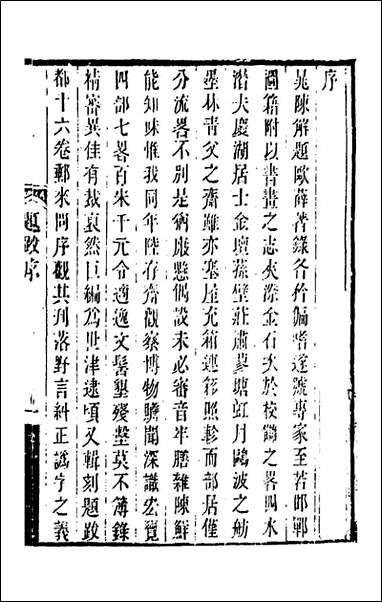 序
晁陳解題歐薛著錄各矜偏嗜遂號專家至若邯鄲
圖籍附以書畫之志夾漈金石次於校讎之畧四水
潛夫慶湖居士金壇孫壁莊肅蓼塘虹月鷗波之舫
墨林青父之齋雖亦塞屋充箱連䇬照軫而部居僅
分流畧不別是猶廄懸偶設未必審音半膳雜陳鮮
能知味惟我同年陸存齋觀察博物贍聞深識宏覽
四部七畧百宋千元令適逸文髻墾殘鏨莫不簿錄
精審異佳有裁裒然巨編爲世津逮頃又輯刻題跋
都十六卷郵來問序觀其刋落野言糾正譌字之義
題跋序
一